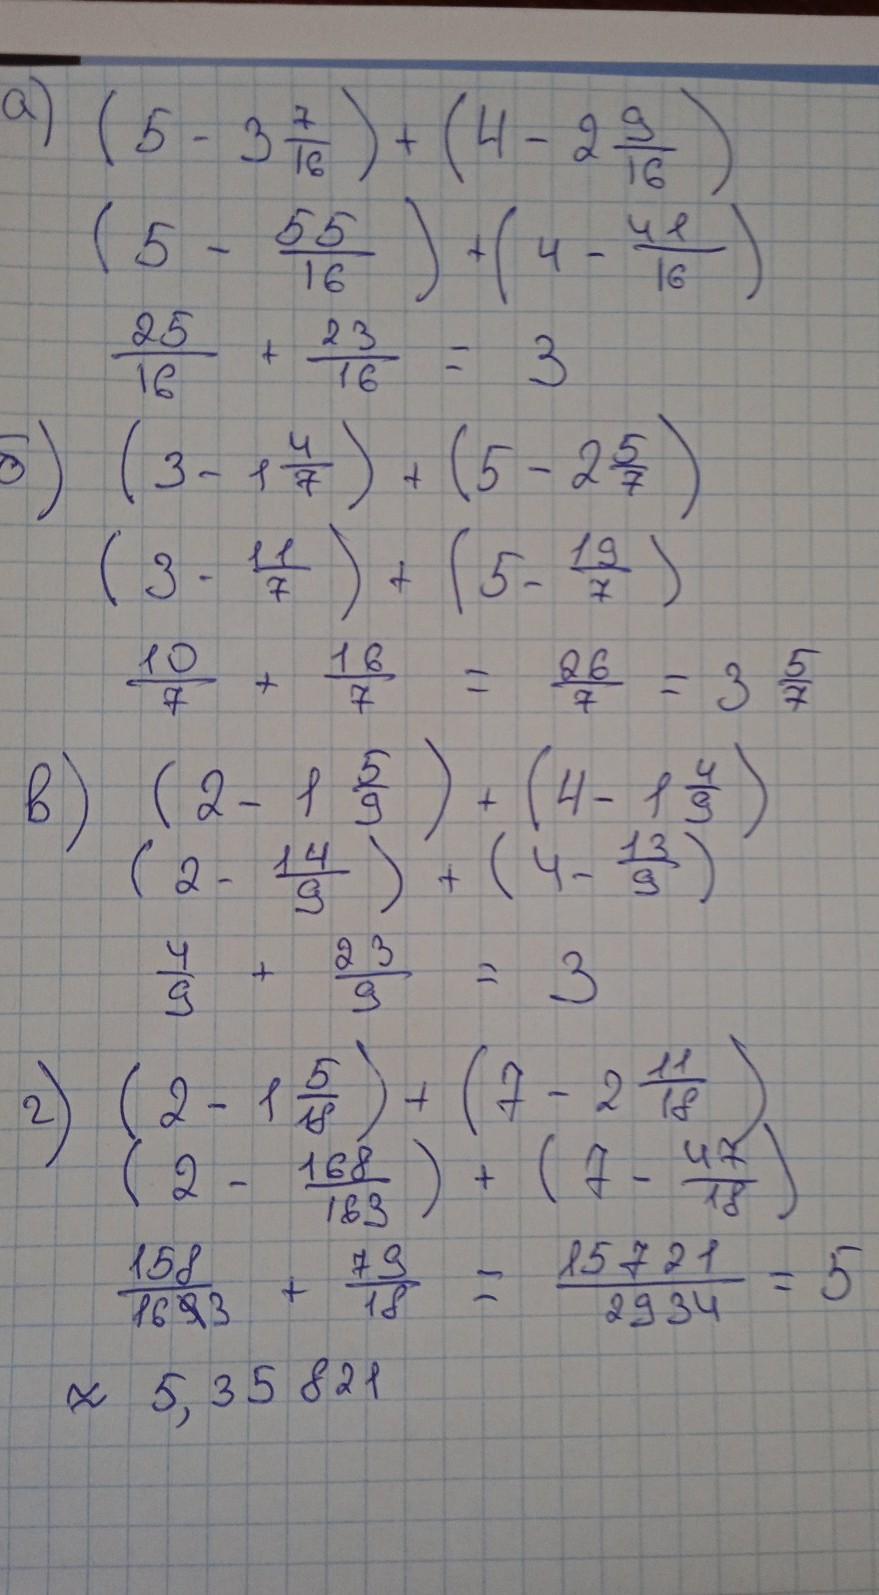 а) (5 - 3 7/16) + (4 - 2 9/16)
(5 - 55/16) + (4 - 41/16)
25/16 + 23/16 = 3
б) (3 - 1 4/7) + (5 - 2 5/7)
(3 - 11/7) + (5 - 19/7)
10/7 + 16/7 = 26/7 = 3 5/7
в) (2 - 1 5/9) + (4 - 1 4/9)
(2 - 14/9) + (4 - 13/9)
4/9 + 23/9 = 3
г) (2 - 1 5/18) + (7 - 2 11/18)
(2 - 168/163) + (7 - 47/18)
158/163 + 79/18 = 15721/2934 = 5
≈ 5,35821